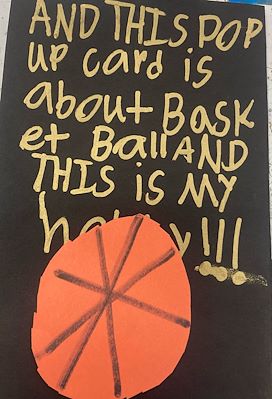 AND THIS POP
up card is
about Bask
et BallAND
THIS is MY
!!!